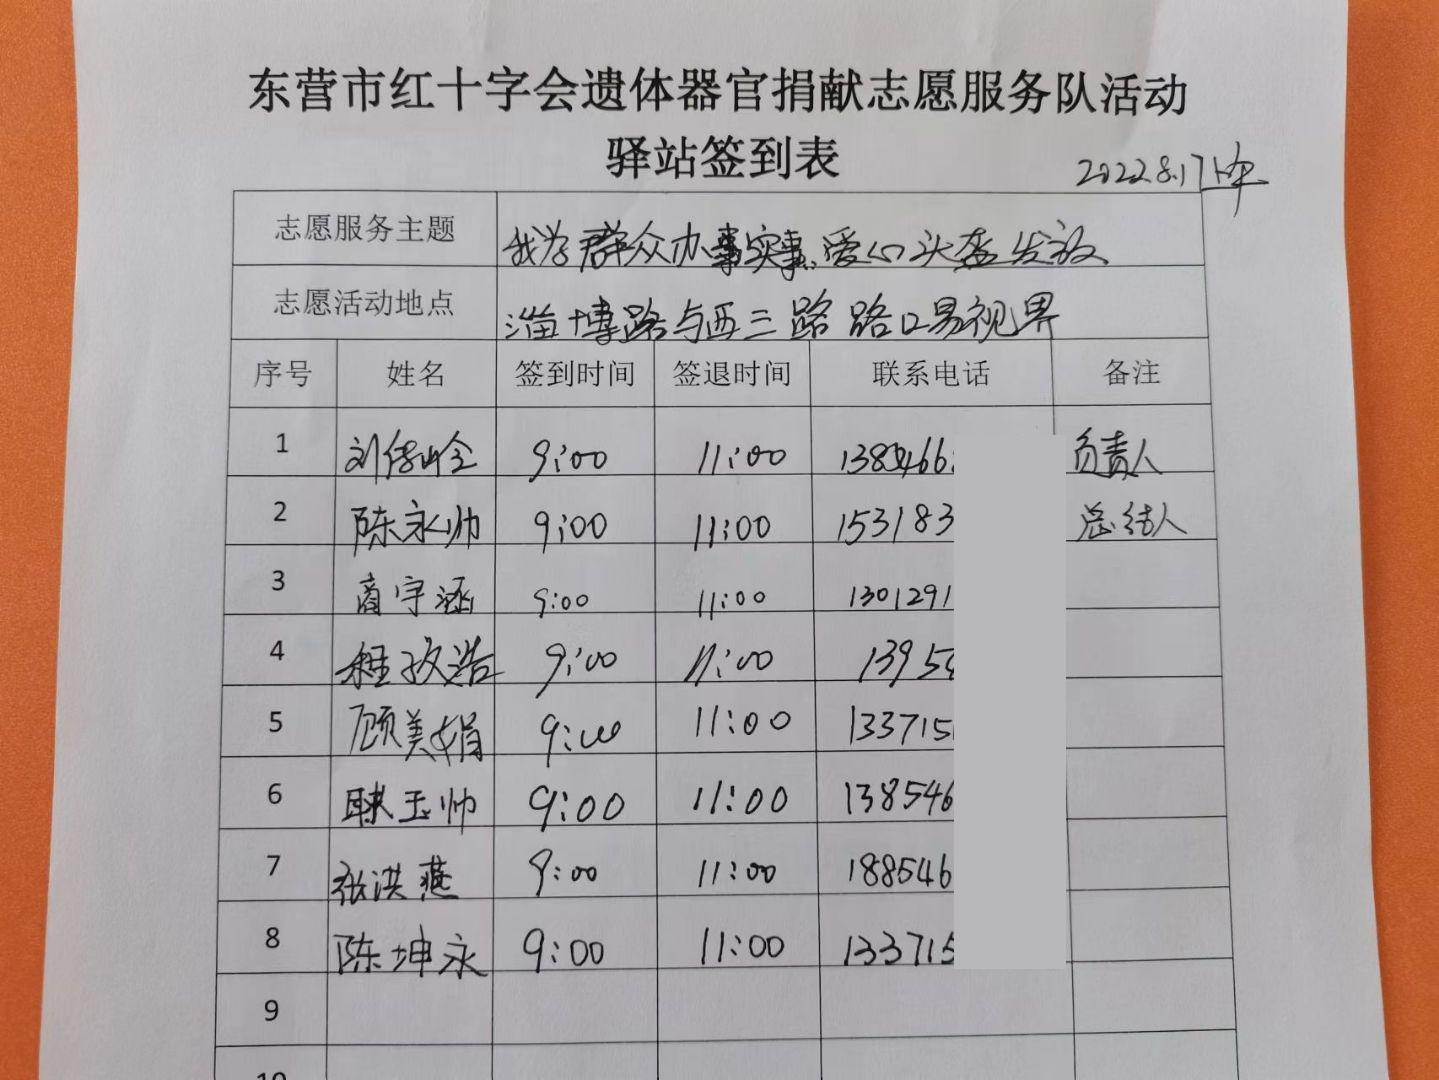 东营市红十字会遗体器官捐献志愿服务队活动
驿站签到表
2022.8.17上午
志愿服务主题 我为群众办事实事,爱心头盔发放
志愿活动地点 淄博路与西三路路口易视界
序号 姓名 签到时间 签退时间 联系电话 备注
1 刘传 9:00 11:00 1385466 负责人
2 陈永帅 9:00 11:00 153183 总结人
3 商宇涵 9:00 11:00 1301291
4 程政浩 9:00 11:00 1395
5 顾美娟 9:00 11:00 133715
6 耿玉帅 9:00 11:00 138546
7 张洪燕 9:00 11:00 188546
8 陈坤永 9:00 11:00 133715
9
10